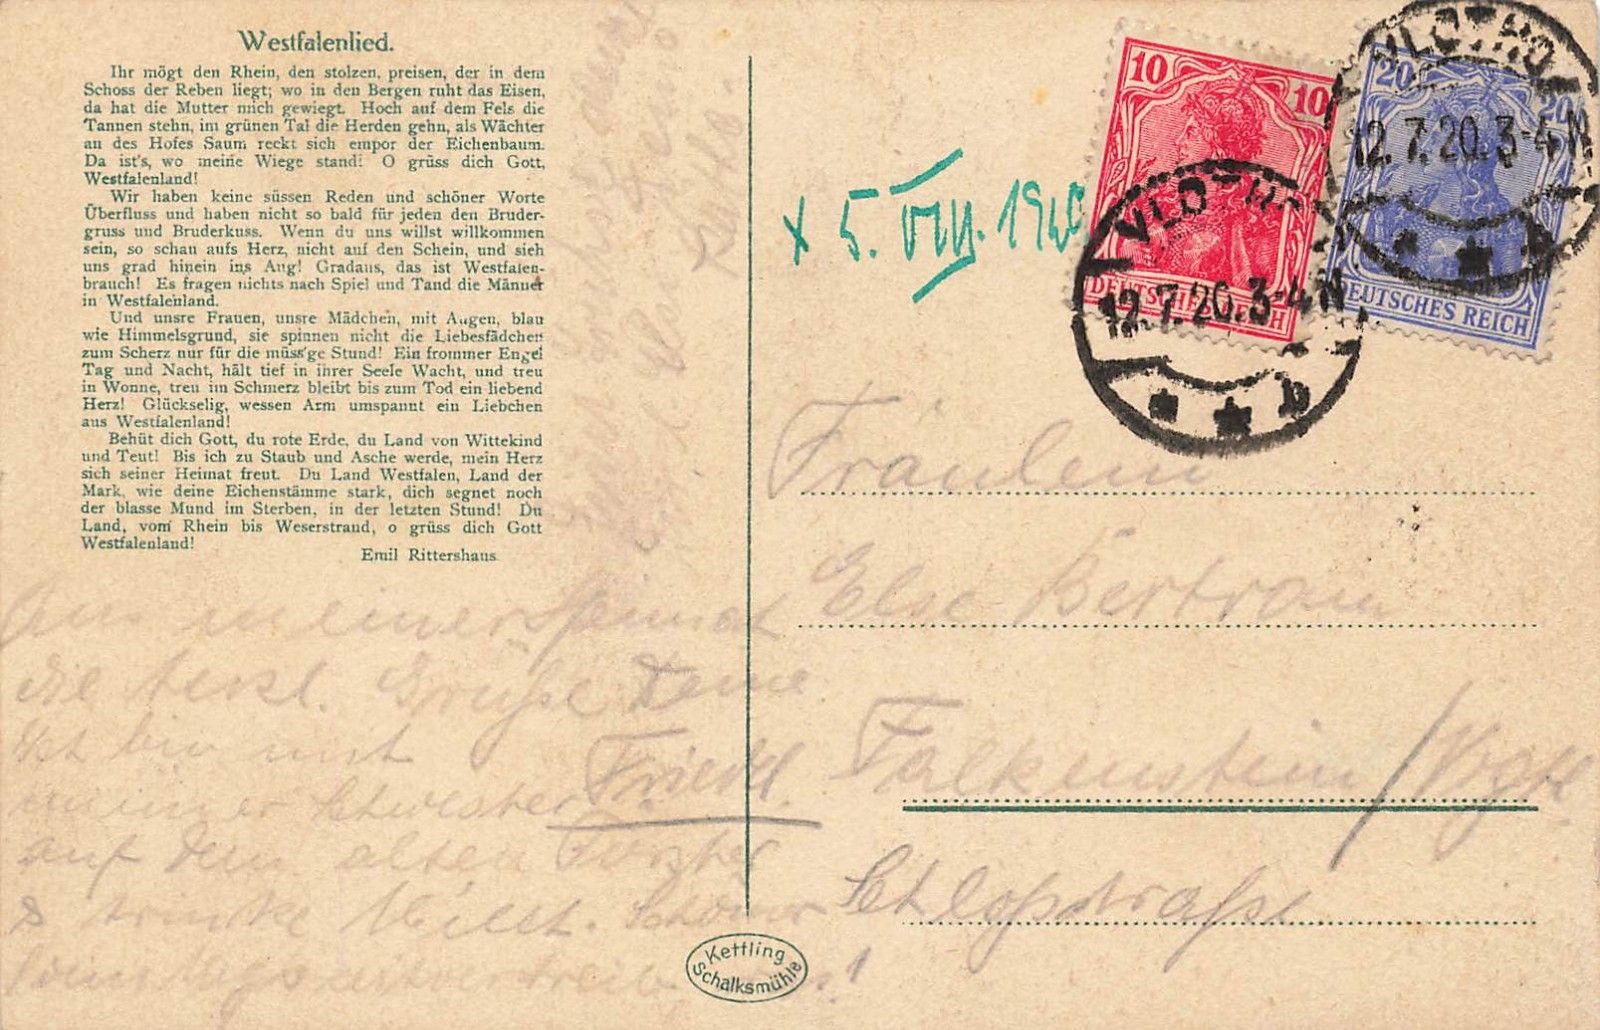 Westfalenlied.
Ihr mögt den Rhein, den stolzen, preisen, der in dem
Schoss der Reben liegt; wo in den Bergen ruht das Eisen,
da hat die Mutter mich gewiegt. Hoch auf dem Fels die
Tannen stehn, im grünen Tal die Herden gehn, als Wächter
an des Hofes Saum reckt sich empor der Eichenbaum.
Da ist's, wo meine Wiege stand! O grüss dich Gott,
Westfalenland!
Wir haben keine süssen Reden und schöner Worte
Überfluss und haben nicht so bald für jeden den Bruder-
gruss und Bruderkuss. Wenn du uns willst willkommen
sein, so schau aufs Herz, nicht auf den Schein, und sieh
uns grad hinein ins Aug! Gradaus, das ist Westfalen-
brauch! Es fragen nichts nach Spiel und Tand die Männer
in Westfalenland.
Und unsre Frauen, unsre Mädchen, mit Augen, blau
wie Himmelsgrund, sie spinnen nicht die Liebesfädchen
zum Scherz nur für die müss'ge Stund! Ein frommer Engel
Tag und Nacht, hält tief in ihrer Seele Wacht, und treu
in Wonne, treu im Schmerz bleibt bis zum Tod ein liebend
Herz! Glückselig, wessen Arm umspannt ein Liebchen
aus Westfalenland!
Behüt dich Gott, du rote Erde, du Land von Wittekind
und Teut! Bis ich zu Staub und Asche werde, mein Herz
sich seiner Heimat freut. Du Land Westfalen, Land der
Mark, wie deine Eichenstämme stark, dich segnet noch
der blasse Mund im Sterben, in der letzten Stund! Du
Land, vom Rhein bis Weserstrand, o grüss dich Gott
Westfalenland!
Emil Rittershaus
Aus meiner Heimat
die herzl. Grüße Deine
Ich bin mit Friedl.
meiner Schwester
auf dem alten
& trinke
x 5. VIII. 1920
10 10
DEUTSCHES REICH
20 20
DEUTSCHES REICH
VLOTHO
12.7.20.3-4N
b
VLOTHO
12.7.20.3-4N
Fräulein
Else Bertram
Falkenstein / Vogtl.
Schloßstraße
Kettling
Schalksmühle